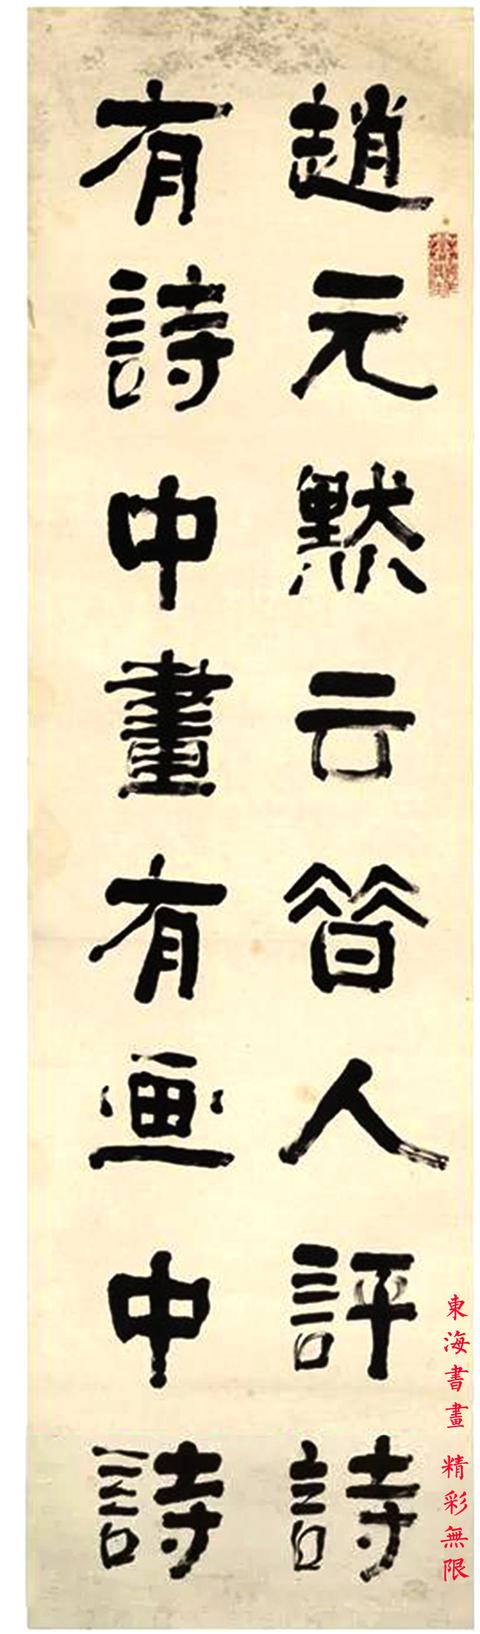 趙元默云昔人評詩
有詩中畫有画中詩
東海書畫 精彩無限